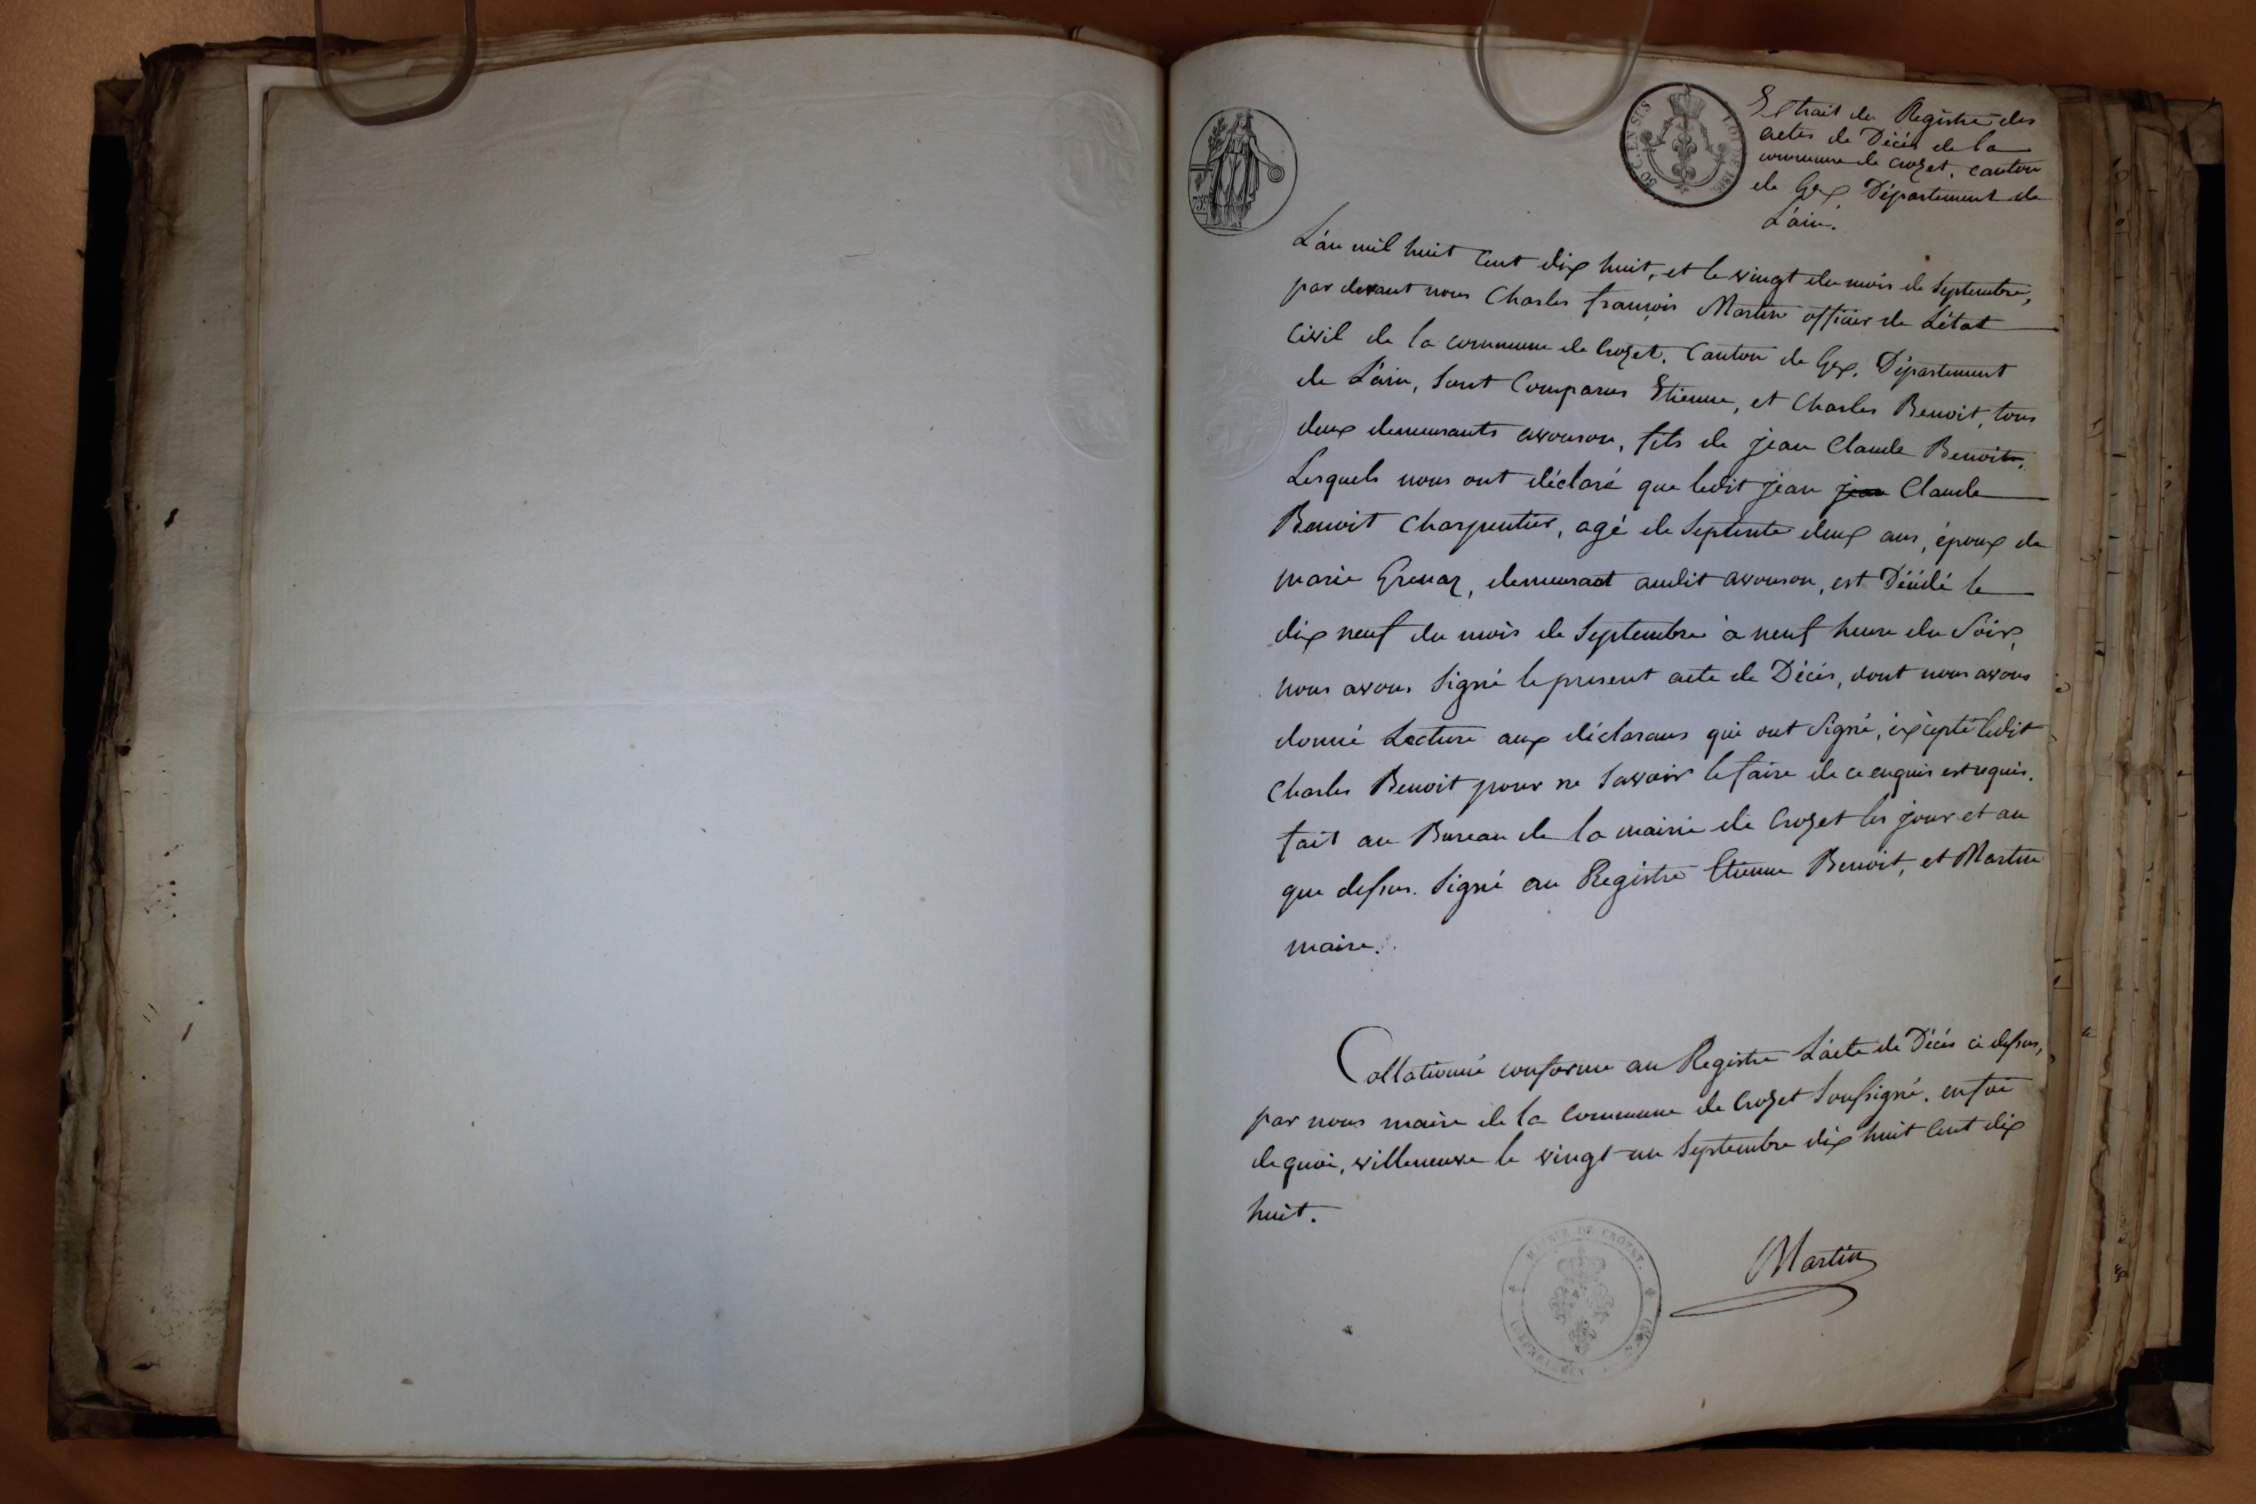 Extrait du Registre des
actes de Décès de la
commune de Crozet, canton
de Gex, Département de
L'ain.
50 C. EN SUS
LOI DE 1816
75
L'an mil huit Cent dix huit, et le vingt du mois de Septembre,
par devant nous Charles françois Martin officier de L'état
Civil de la commune de Crozet, Canton de Gex, Département
de L'ain, Sont Comparus Etienne, et Charles Benoit, tous
deux demeurants avouson, fils de jean Claude Benoit,
Lesquels nous ont déclaré que ledit jean jean Claude
Benoit Charpentier, agé de Septente deux ans, époux de
marie Grenaz, demeurant audit avouson, est Décédé le
dix neuf du mois de Septembre à neuf heure du Soir,
nous avons Signé le present acte de Décès, dont nous avons
donné Lecture aux déclarans qui ont Signé, éxcepté ledit
Charles Benoit pour ne Savoir le faire de ce enquis et requis.
fait au Bureau de la mairie de Crozet les jour et an
que dessus. Signé au Registre Etienne Benoit, et Martin
maire.
Collationné conforme au Registre L'acte de Décès ci dessus,
par nous maire de la Commune de Crozet Soussigné. en foi
de quoi, villeneuve le vingt un Septembre dix huit Cent dix
huit.
MAIRIE DE CROZET.
Martin